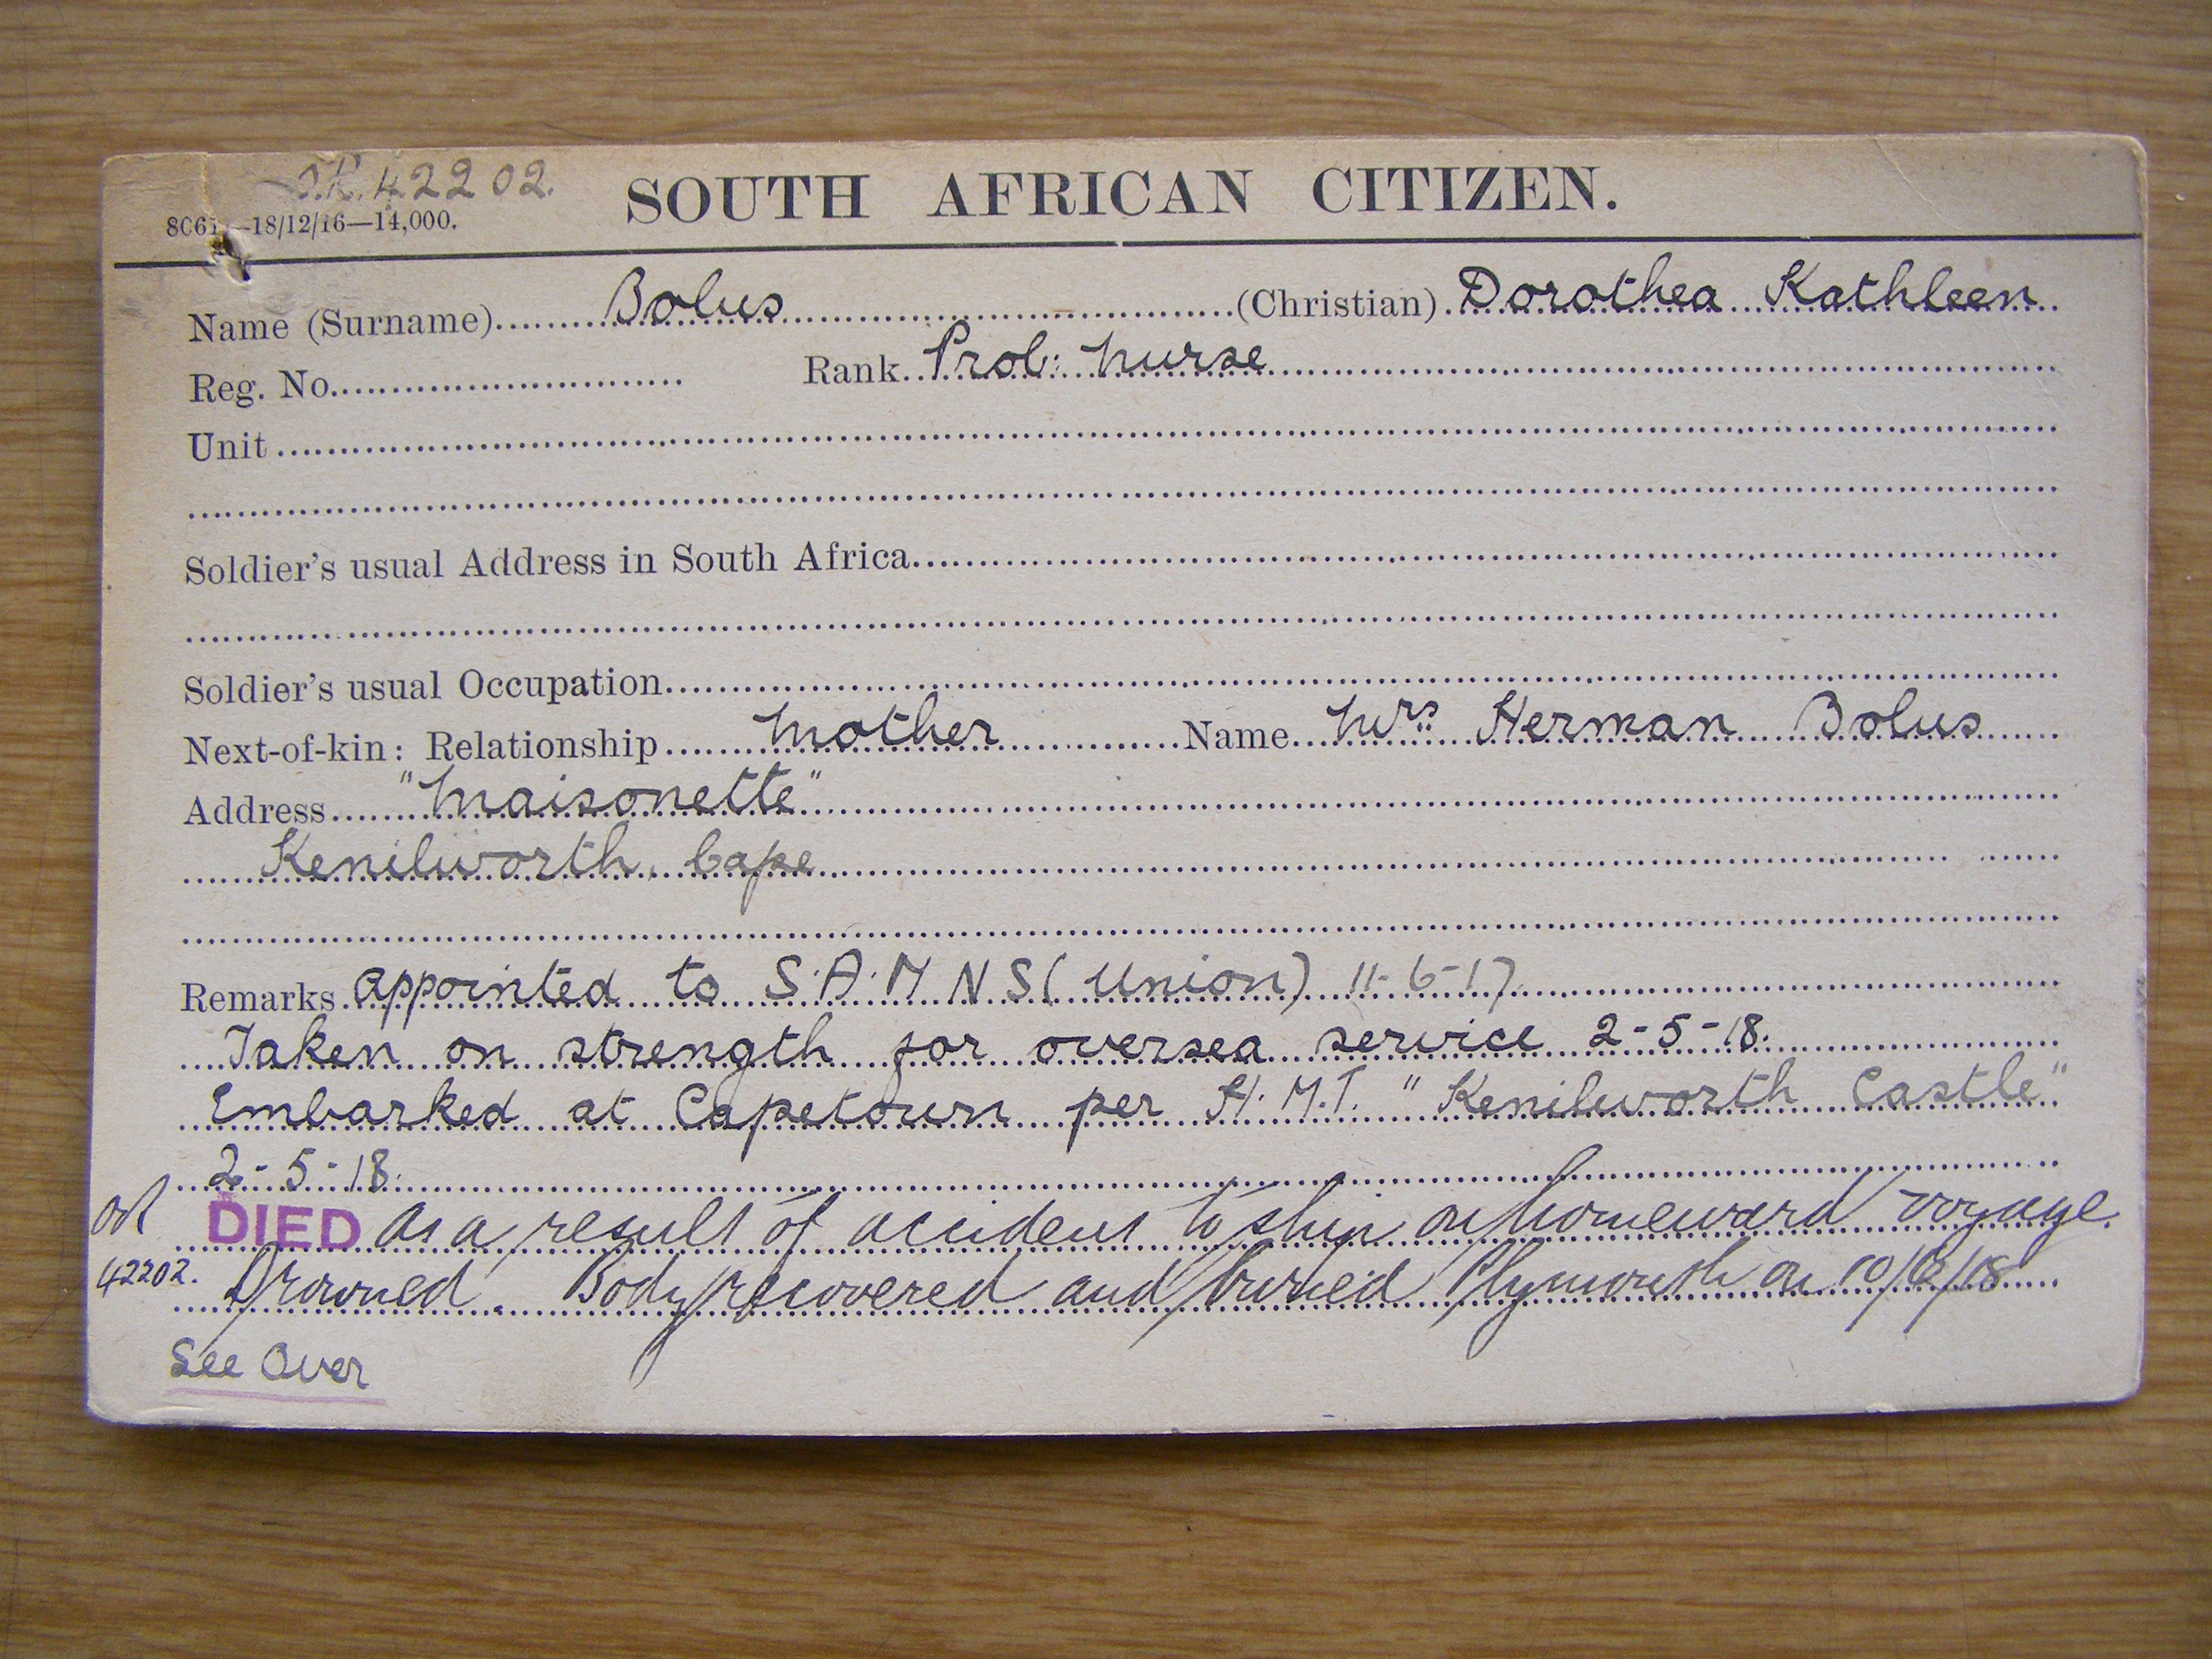 O.R. 42202.
SOUTH AFRICAN CITIZEN.
—18/12/16—14,000.
Name (Surname) Bolus (Christian) Dorothea Kathleen
Reg. No. Rank Prob: Nurse
Unit
Soldier's usual Address in South Africa
Soldier's usual Occupation
Next-of-kin: Relationship Mother Name Mrs Herman Bolus
Address "Maisonette"
Kenilworth, Cape
Remarks appointed to S.A.M N S (Union) 11-6-17
Taken on strength for oversea service 2-5-18.
Embarked at Capetown per H.M.T. "Kenilworth Castle"
2-5-18.
DIED as a result of accident to ship on homeward voyage.
42202. Drowned. Body recovered and buried Plymouth on
See Over